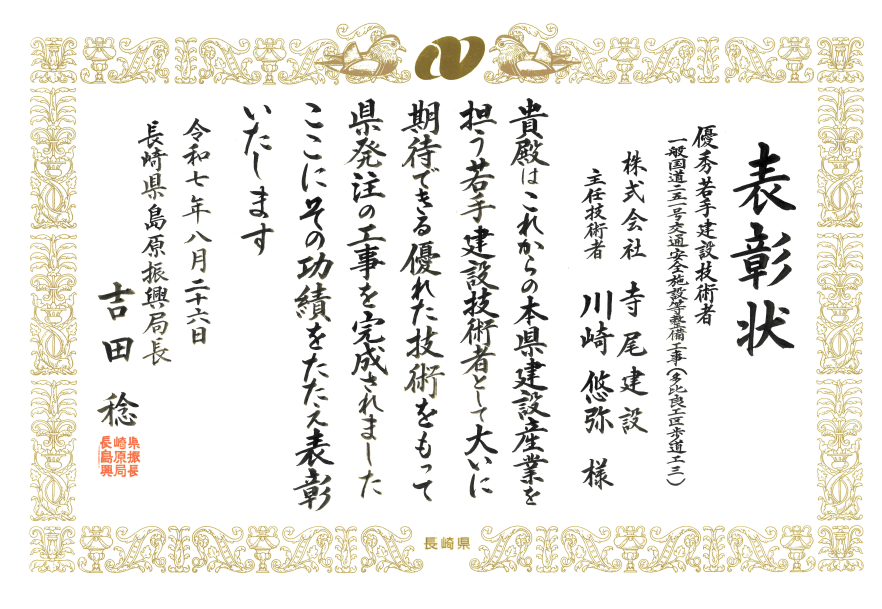 表彰状
優秀若手建設技術者
一般国道二五一号交通安全施設等整備工事(多比良工区歩道工三)
株式会社 寺尾建設
主任技術者 川崎 悠弥 様
貴殿はこれからの本県建設産業を
担う若手建設技術者として大いに
期待できる優れた技術をもって
県発注の工事を完成されました
ここにその功績をたたえ表彰
いたします
令和七年八月二十六日
長崎県島原振興局長
吉田 稔
県振長
崎原局
長島興
長崎県